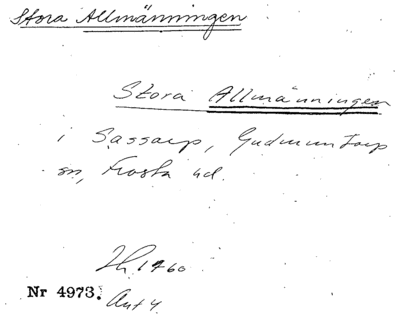 Stora Allmänningen
Stora Allmänningen
i Sassarp, Gudmuntorp
sn, Frosta hd.
1960
Nr 4973.